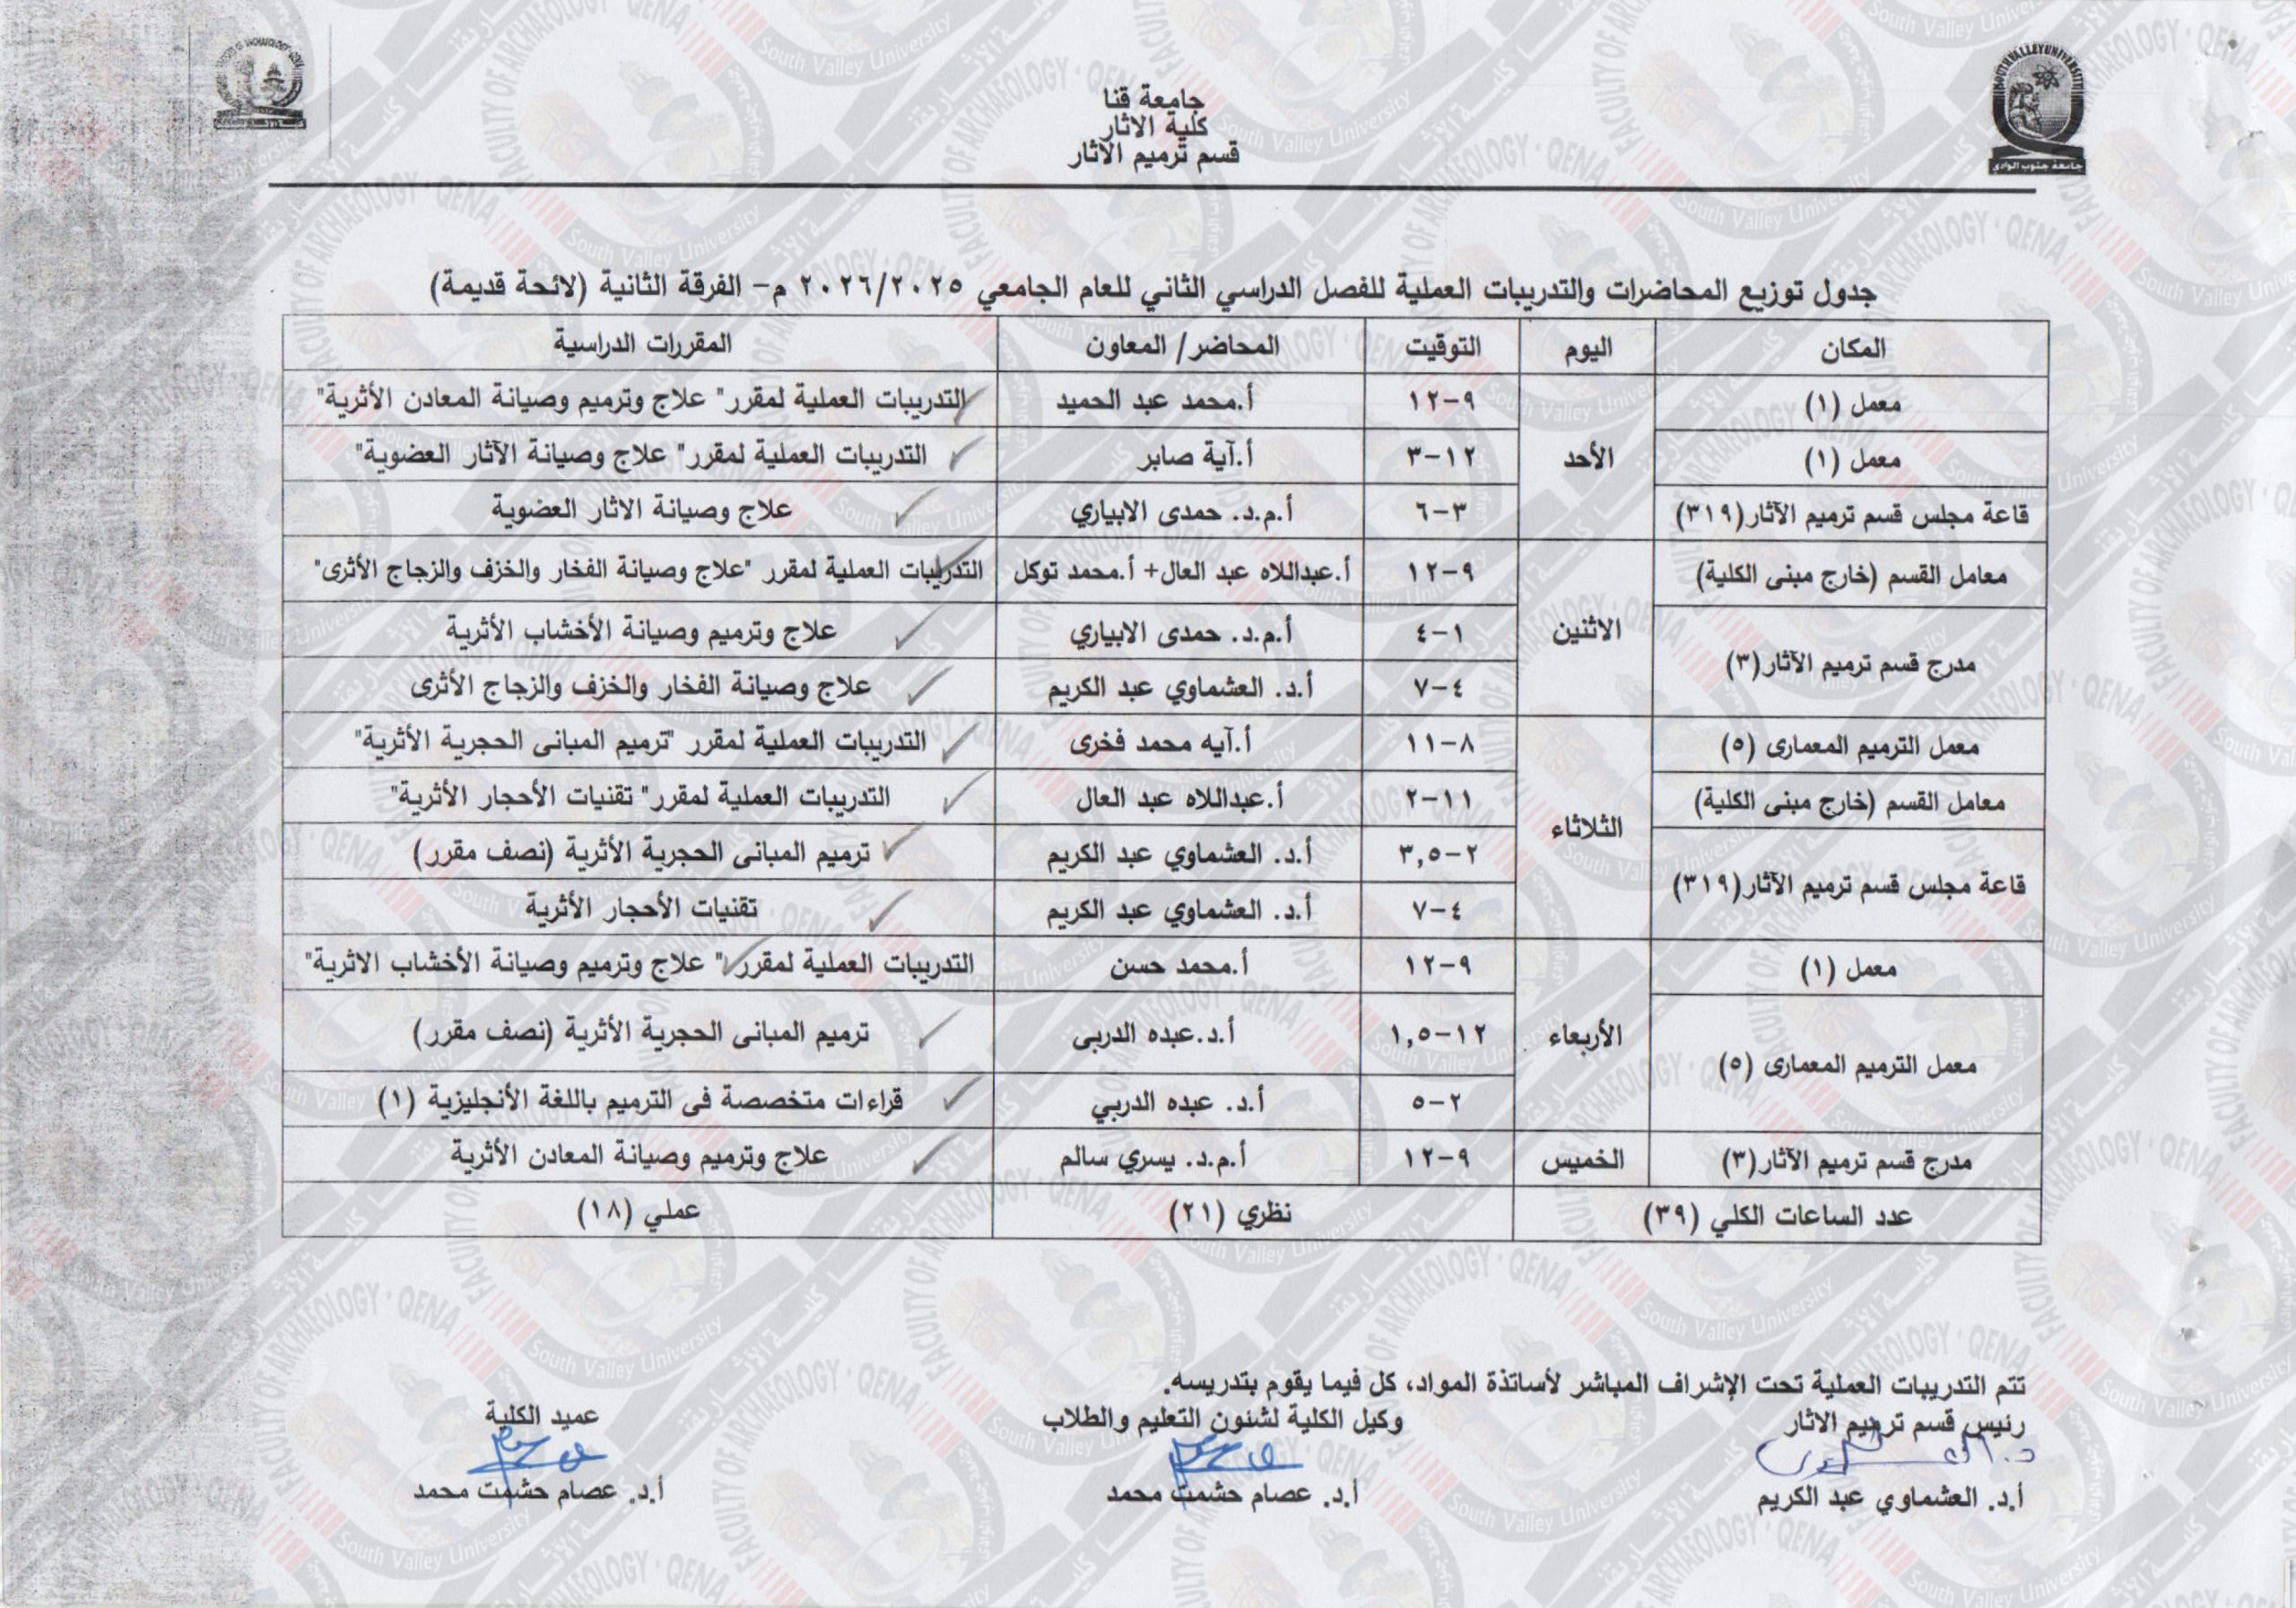 جامعة قنا
كلية الاثار
قسم ترميم الاثار
جامعة جنوب الوادى
جدول توزيع المحاضرات والتدريبات العملية للفصل الدراسي الثاني للعام الجامعي ٢٠٢٦/٢٠٢٥ م- الفرقة الثانية (لائحة قديمة)
المكان اليوم التوقيت المحاضر/ المعاون المقررات الدراسية
معمل (١) الأحد ٩-١٢ أ.محمد عبد الحميد التدريبات العملية لمقرر" علاج وترميم وصيانة المعادن الأثرية"
معمل (١) ١٢-٣ أ.آية صابر التدريبات العملية لمقرر" علاج وصيانة الآثار العضوية"
قاعة مجلس قسم ترميم الآثار(٣١٩) ٣-٦ أ.م.د. حمدى الابياري علاج وصيانة الاثار العضوية
معامل القسم (خارج مبنى الكلية) الاثنين ٩-١٢ أ.عبداللاه عبد العال+ أ.محمد توكل التدريبات العملية لمقرر "علاج وصيانة الفخار والخزف والزجاج الأثرى"
مدرج قسم ترميم الآثار(٣) ١-٤ أ.م.د. حمدى الابياري علاج وترميم وصيانة الأخشاب الأثرية
٤-٧ أ.د. العشماوي عبد الكريم علاج وصيانة الفخار والخزف والزجاج الأثرى
معمل الترميم المعمارى (٥) الثلاثاء ٨-١١ أ.آيه محمد فخرى التدريبات العملية لمقرر "ترميم المبانى الحجرية الأثرية"
معامل القسم (خارج مبنى الكلية) ١١-٢ أ.عبداللاه عبد العال التدريبات العملية لمقرر" تقنيات الأحجار الأثرية"
قاعة مجلس قسم ترميم الآثار(٣١٩) ٢-٣,٥ أ.د. العشماوي عبد الكريم ترميم المبانى الحجرية الأثرية (نصف مقرر)
٤-٧ أ.د. العشماوي عبد الكريم تقنيات الأحجار الأثرية
معمل (١) الأربعاء ٩-١٢ أ.محمد حسن التدريبات العملية لمقرر" علاج وترميم وصيانة الأخشاب الاثرية"
معمل الترميم المعمارى (٥) ١٢-١,٥ أ.د.عبده الدربى ترميم المبانى الحجرية الأثرية (نصف مقرر)
٢-٥ أ.د. عبده الدربي قراءات متخصصة فى الترميم باللغة الأنجليزية (١)
مدرج قسم ترميم الآثار(٣) الخميس ٩-١٢ أ.م.د. يسري سالم علاج وترميم وصيانة المعادن الأثرية
عدد الساعات الكلي (٣٩) نظري (٢١) عملي (١٨)
تتم التدريبات العملية تحت الإشراف المباشر لأساتذة المواد، كل فيما يقوم بتدريسه.
رئيس قسم ترميم الاثار وكيل الكلية لشئون التعليم والطلاب عميد الكلية
أ.د. العشماوي عبد الكريم أ.د. عصام حشمت محمد أ.د. عصام حشمت محمد